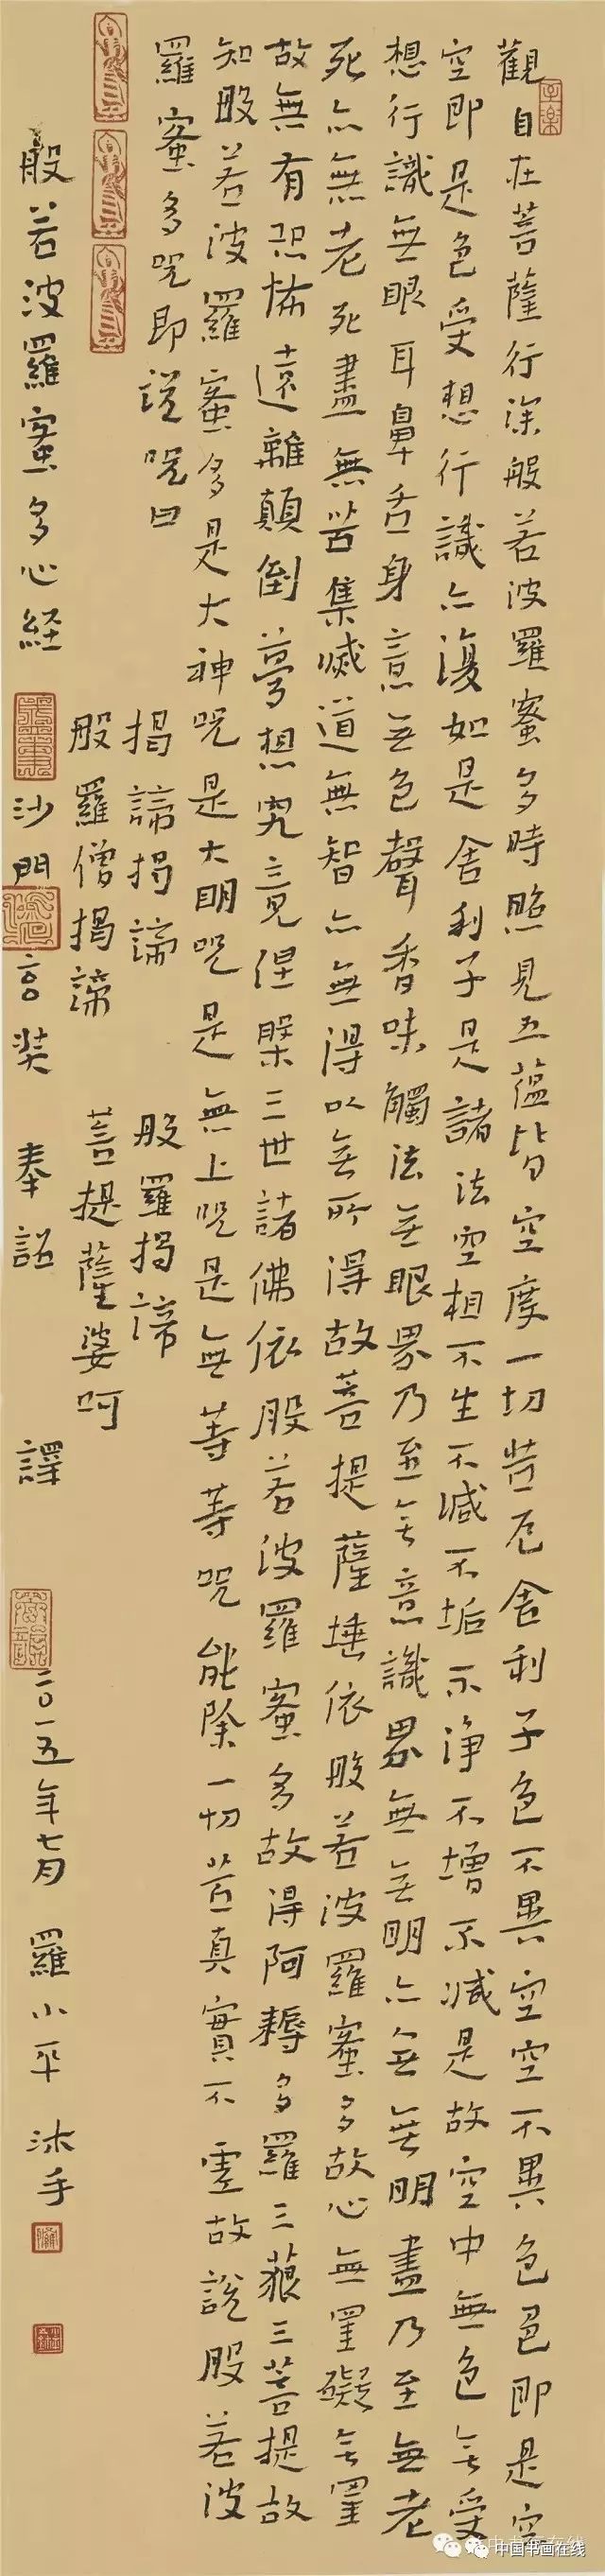 觀自在菩薩行深般若波羅蜜多時照見五蘊皆空度一切苦厄舍利子色不異空空不異色色即是空
空即是色受想行識亦復如是舍利子是諸法空相不生不滅不垢不淨不增不減是故空中無色无受
想行識無眼耳鼻舌身意无色聲香味觸法无眼界乃至无意識界無无明亦无無明盡乃至無老
死亦無老死盡無苦集滅道無智亦無得以无所得故菩提薩埵依般若波羅蜜多故心無罣礙无罣
故無有恐怖遠離顛倒夢想究竟涅槃三世諸佛依般若波羅蜜多故得阿耨多羅三藐三菩提故
知般若波羅蜜多是大神咒是大明咒是無上咒是無等等咒能除一切苦真實不虛故說般若波
羅蜜多咒即說咒曰
揭諦揭諦 般羅揭諦
般羅僧揭諦 菩提薩婆呵
般若波羅蜜多心経 沙門玄奘 奉詔 譯 二〇一五年七月 羅小平 沐手
中国书画在线